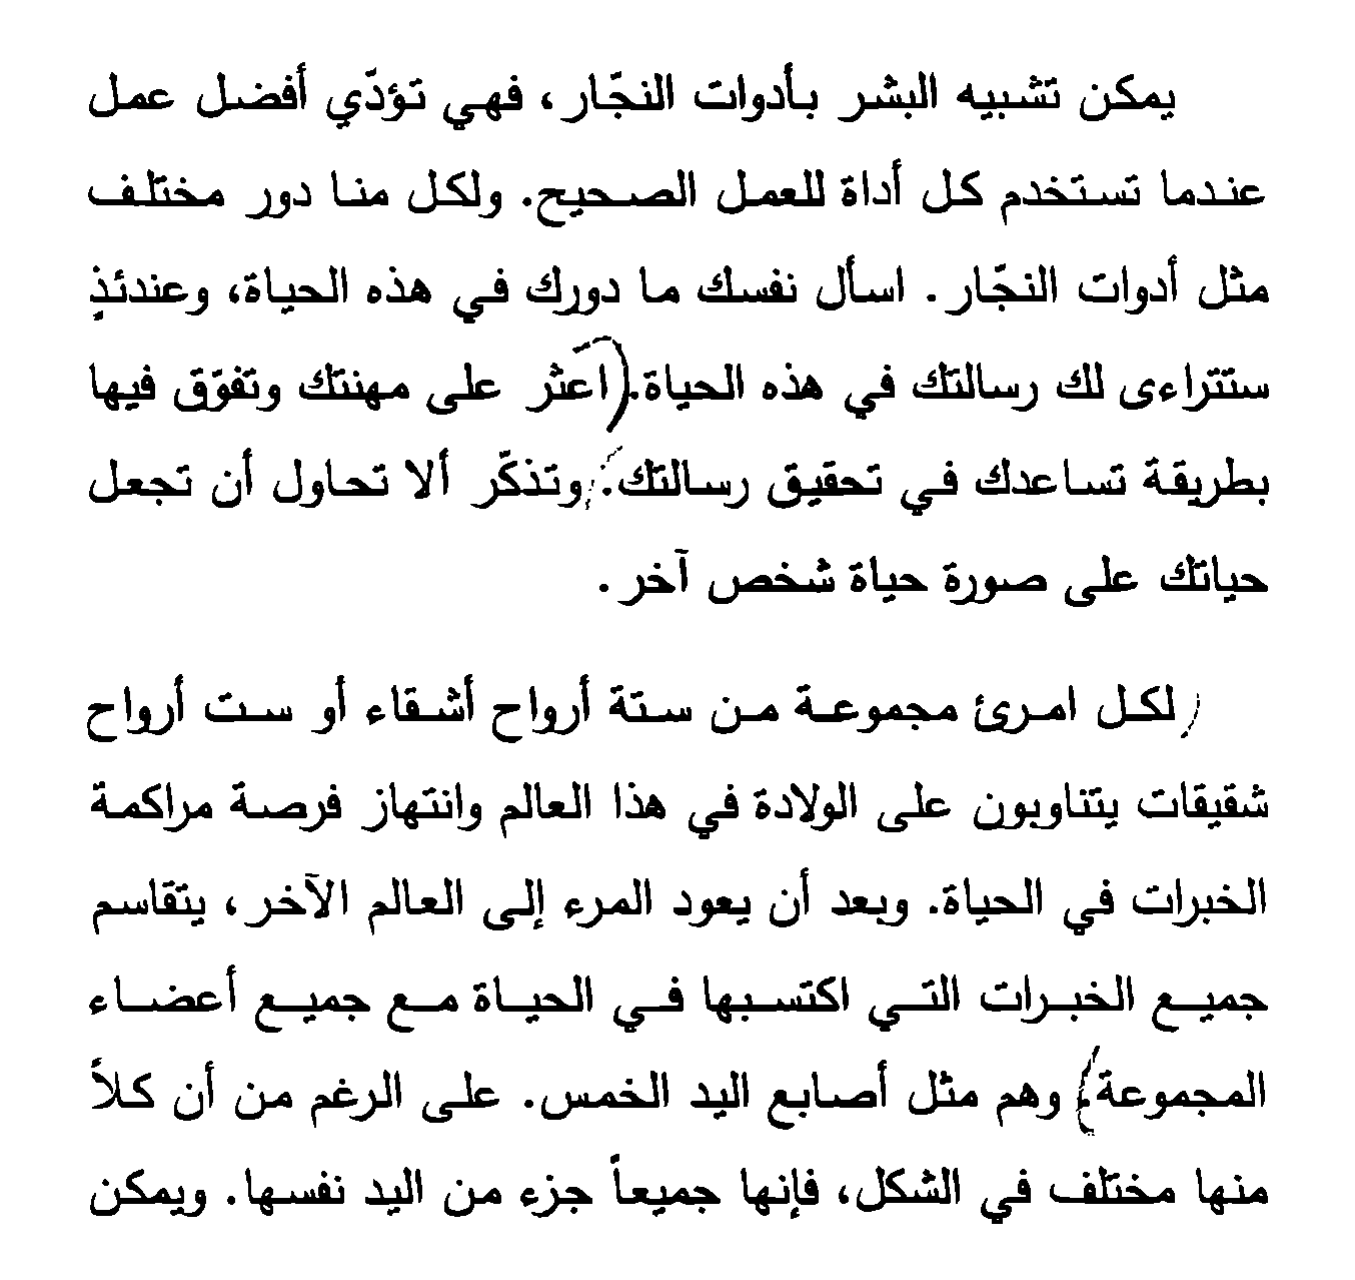 يمكن تشبيه البشر بأدوات النجّار، فهي تؤدّي أفضل عمل
عندما تستخدم كل أداة للعمل الصحيح. ولكل منا دور مختلف
مثل أدوات النجّار. اسأل نفسك ما دورك في هذه الحياة، وعندئذٍ
ستتراءى لك رسالتك في هذه الحياة. (اعثر على مهنتك وتفوّق فيها
بطريقة تساعدك في تحقيق رسالتك. وتذكّر ألا تحاول أن تجعل
حياتك على صورة حياة شخص آخر.
لكل امرئ مجموعة من ستة أرواح أشقاء أو ست أرواح
شقيقات يتناوبون على الولادة في هذا العالم وانتهاز فرصة مراكمة
الخبرات في الحياة. وبعد أن يعود المرء إلى العالم الآخر، يتقاسم
جميع الخبرات التي اكتسبها في الحياة مع جميع أعضاء
المجموعة. وهم مثل أصابع اليد الخمس. على الرغم من أن كلاً
منها مختلف في الشكل، فإنها جميعاً جزء من اليد نفسها. ويمكن